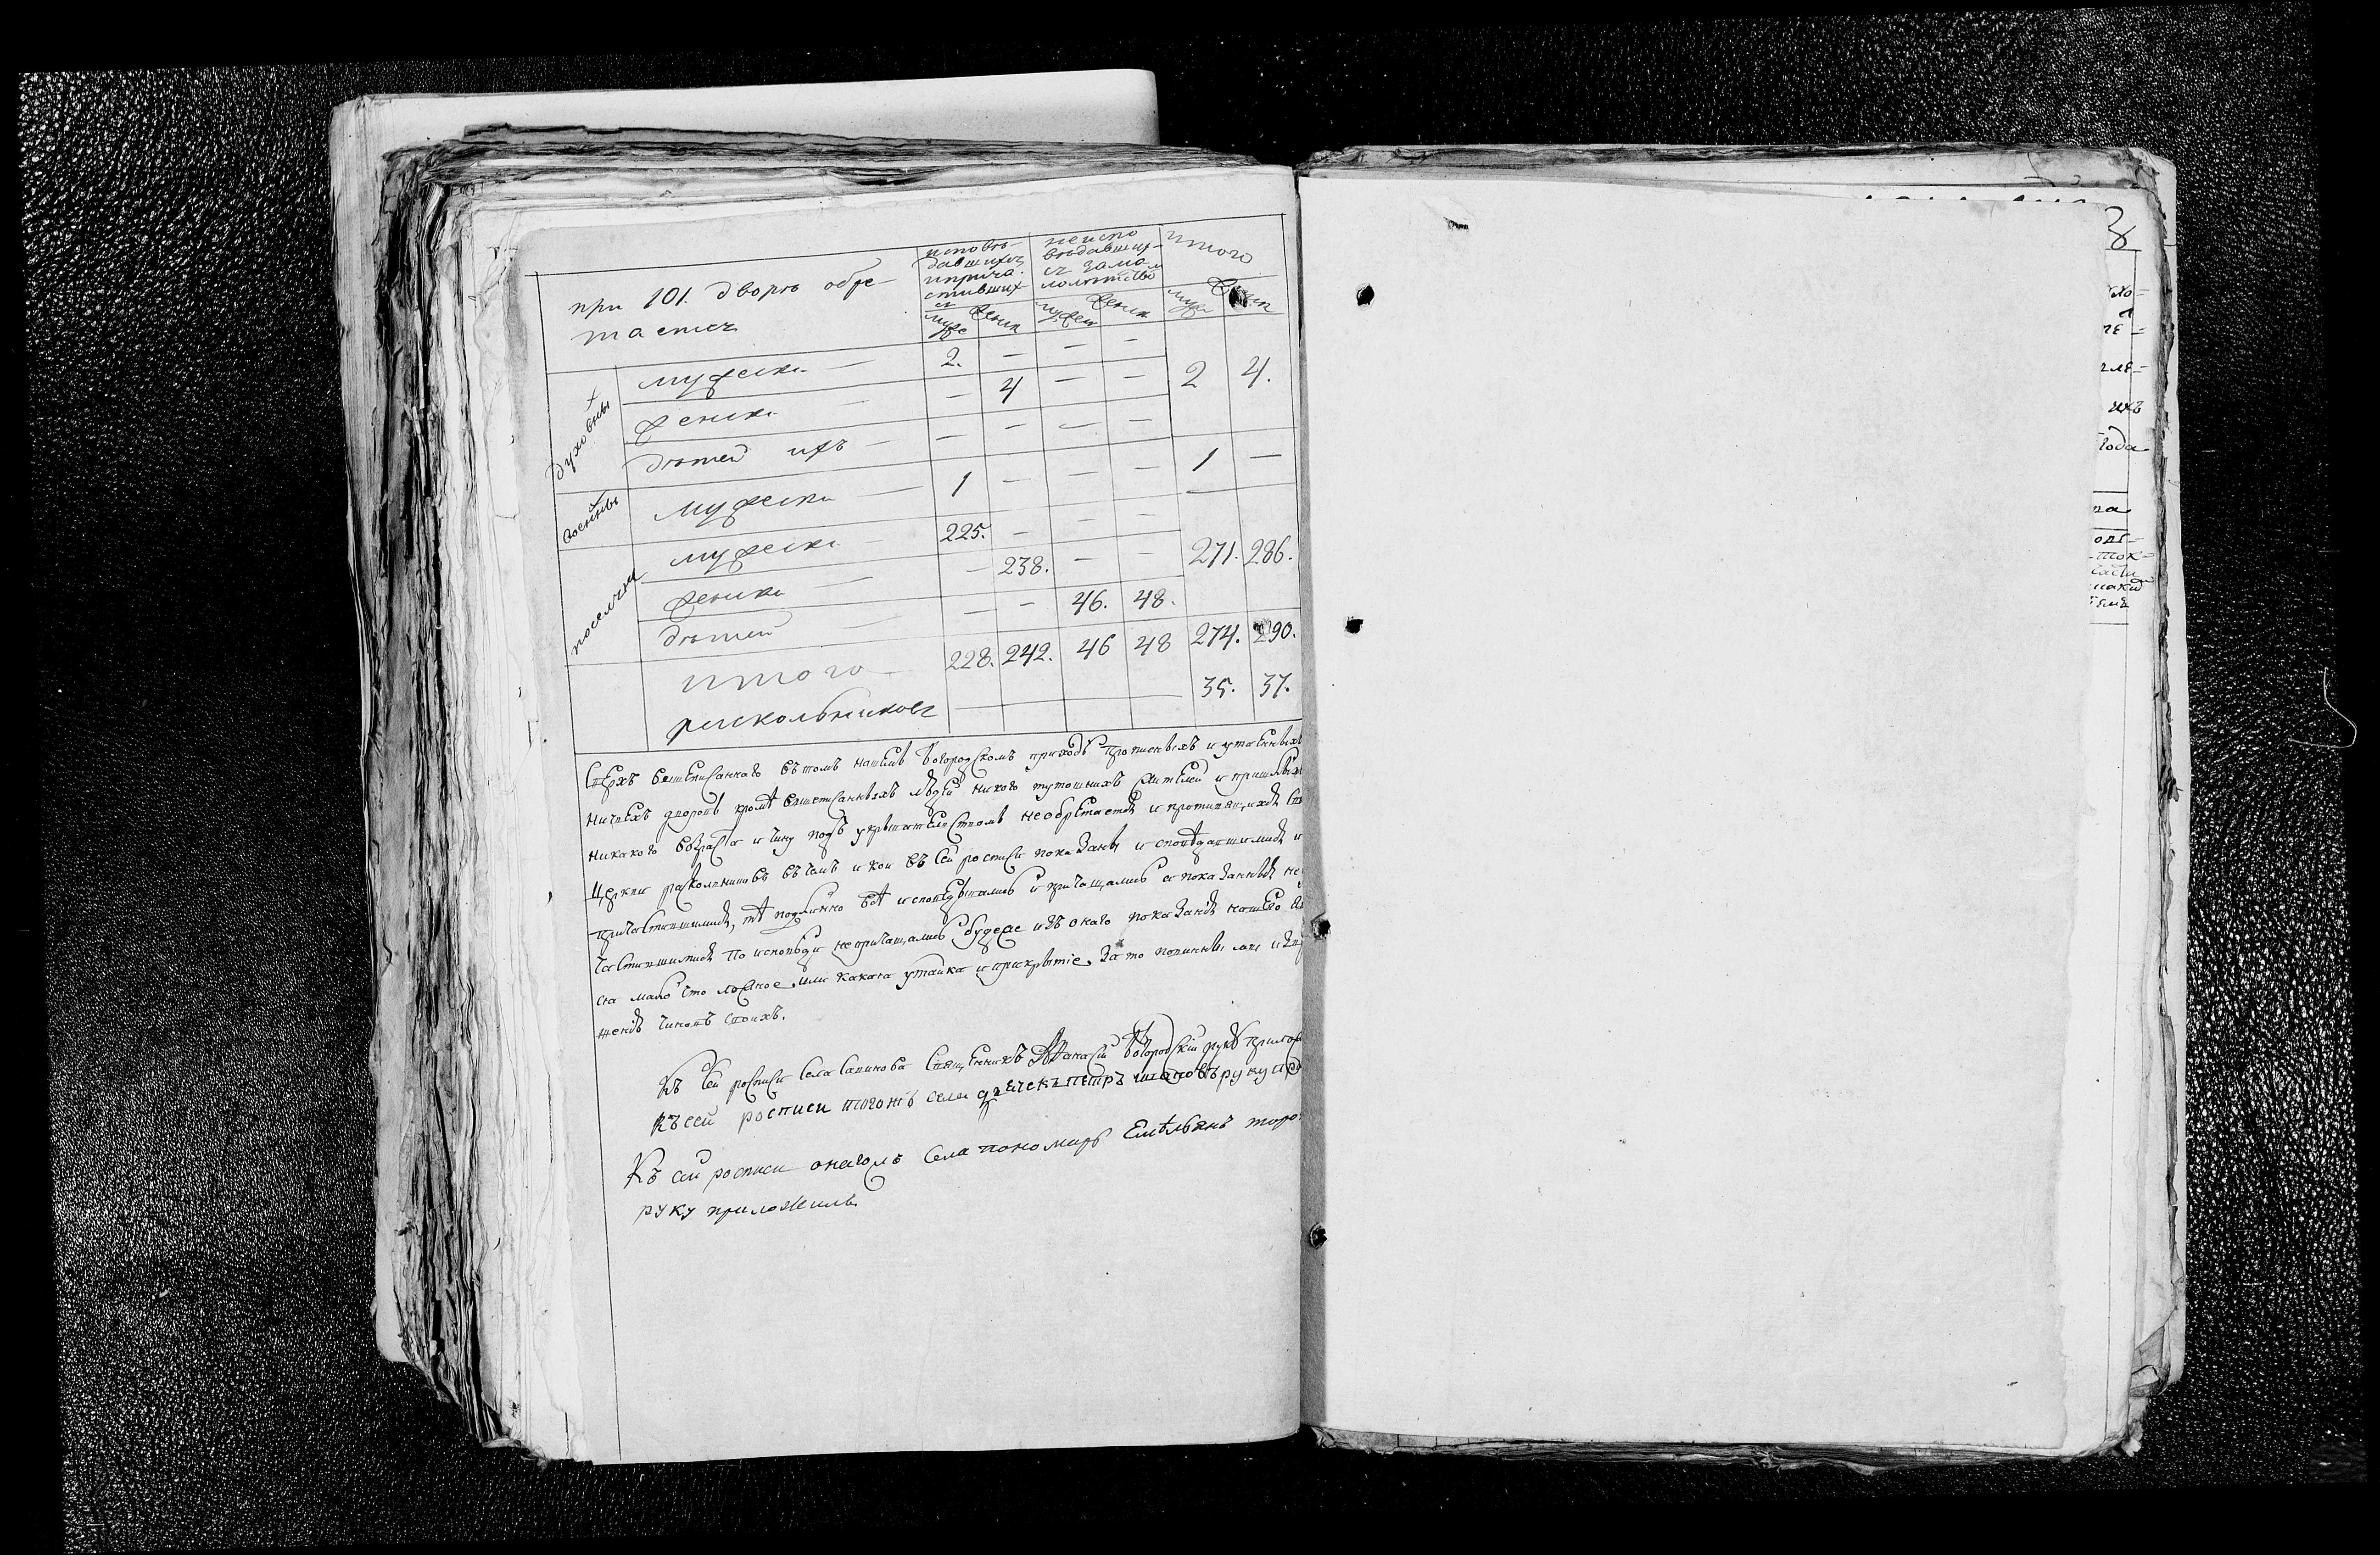 при 101. дворѣ обре-
таетса
исповѣ-
давшихса
иприча-
стивших
са
неиспо
вѣдавших-
са замал
лолѣтство
итого
муже женск мужеск женск муже женск
духовны мужески — 2. — — —
женски — — 4 — — 2 4.
дѣтей ихъ — — — — —
военны мужески — 1 — — — 1 —
поселяни мужески — 225. — — —
женски — — 238. — — 271. 286.
дѣтей — — — 46. 48.
итого — 228. 242. 46 48 274. 290.
раскольниковъ — 35. 37.
Сверхъ вышеписаннаго вътомъ нашемъ Богородскомъ приходѣ прописныхъ и утаенныхъ
ничьихъ дворовъ кромѣ вышеписанныхъ людей никого тутошнихъ жителей и пришлыхъ
никакого возраста и чину подъ укрывателством необрѣтается и противящихся Свя
Церкви расколниковъ вчемъ и кои въ сей росписи показаны исповѣдавшимися и
причастившимися, тѣ подлинно всѣ исповѣдывались и причащались а показанныя не
частившимися по исповѣди непричащались буде же изъ онаго показанія нашего яв
ся мало что ложное или какая утайка и прикрытіе. За то повинны мы изв
женія чиновъ своихъ.
Къ сей росписи Села Савинова Священникъ Афанасій Богородскій руку прилож
Къ сей росписи тогожъ села дьячекъ петръ шаповъ руку п
Къ сей росписи онагожъ Села пономарь Емѣльянъ
руку приложилъ.
3
ихъ
года
на